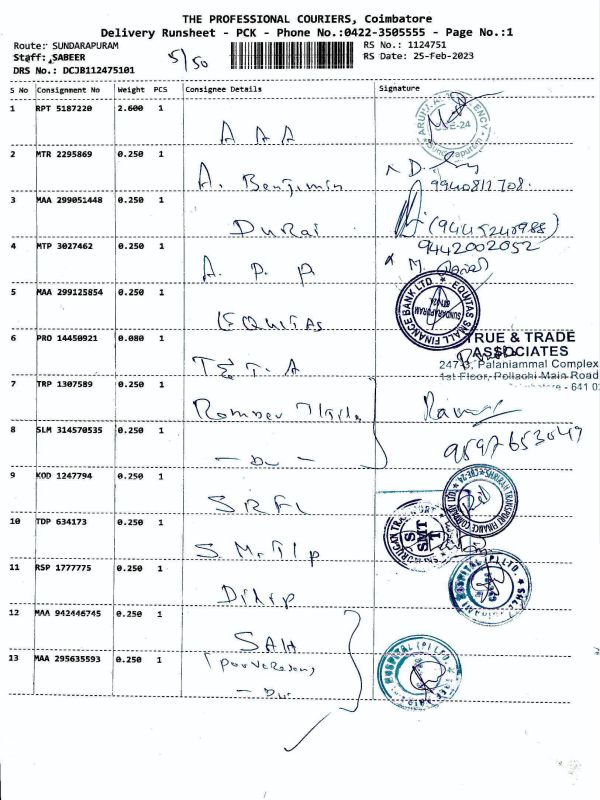 THE PROFESSIONAL COURIERS, Coimbatore
Delivery Runsheet - PCK - Phone No.:0422-3505555 - Page No.:1
Route: SUNDARAPURAM
RS No.: 1124751
Staff: SABEER
5/50
RS Date: 25-Feb-2023
DRS No.: DCJB112475101
S No Consignment No Weight PCS Consignee Details Signature
1 RPT 5187220 2.600 1 A A A
2 MTR 2295869 0.250 1 A. Benjimin 9940812708.
3 MAA 299051448 0.250 1 DuRai (9445240988)
9442002052
4 MTP 3027462 0.250 1 A. P. P.
5 MAA 299125854 0.250 1 EQUITAS
EQUITAS SMALL FINANCE BANK LTD
SUNDARAPURAM
6 PRO 14450921 0.080 1 T & T. A
TRUE & TRADE
ASSOCIATES
247-3, Palaniammal Complex
1st Floor, Pollachi Main Road
7 TRP 1307589 0.250 1
8 SLM 314570535 0.250 1 - Du - 9597653049
9 KOD 1247794 0.250 1 SRFL
SHRIRAM TRANSPORT FINANCE COMPANY LTD
10 TDP 634173 0.250 1 S. M. T
SMT
11 RSP 1777775 0.250 1 Dilip
HOSPITAL (P) LTD.
12 MAA 942446745 0.250 1 SAH
13 MAA 295635593 0.250 1 - Du -
HOSPITAL (P) LTD.